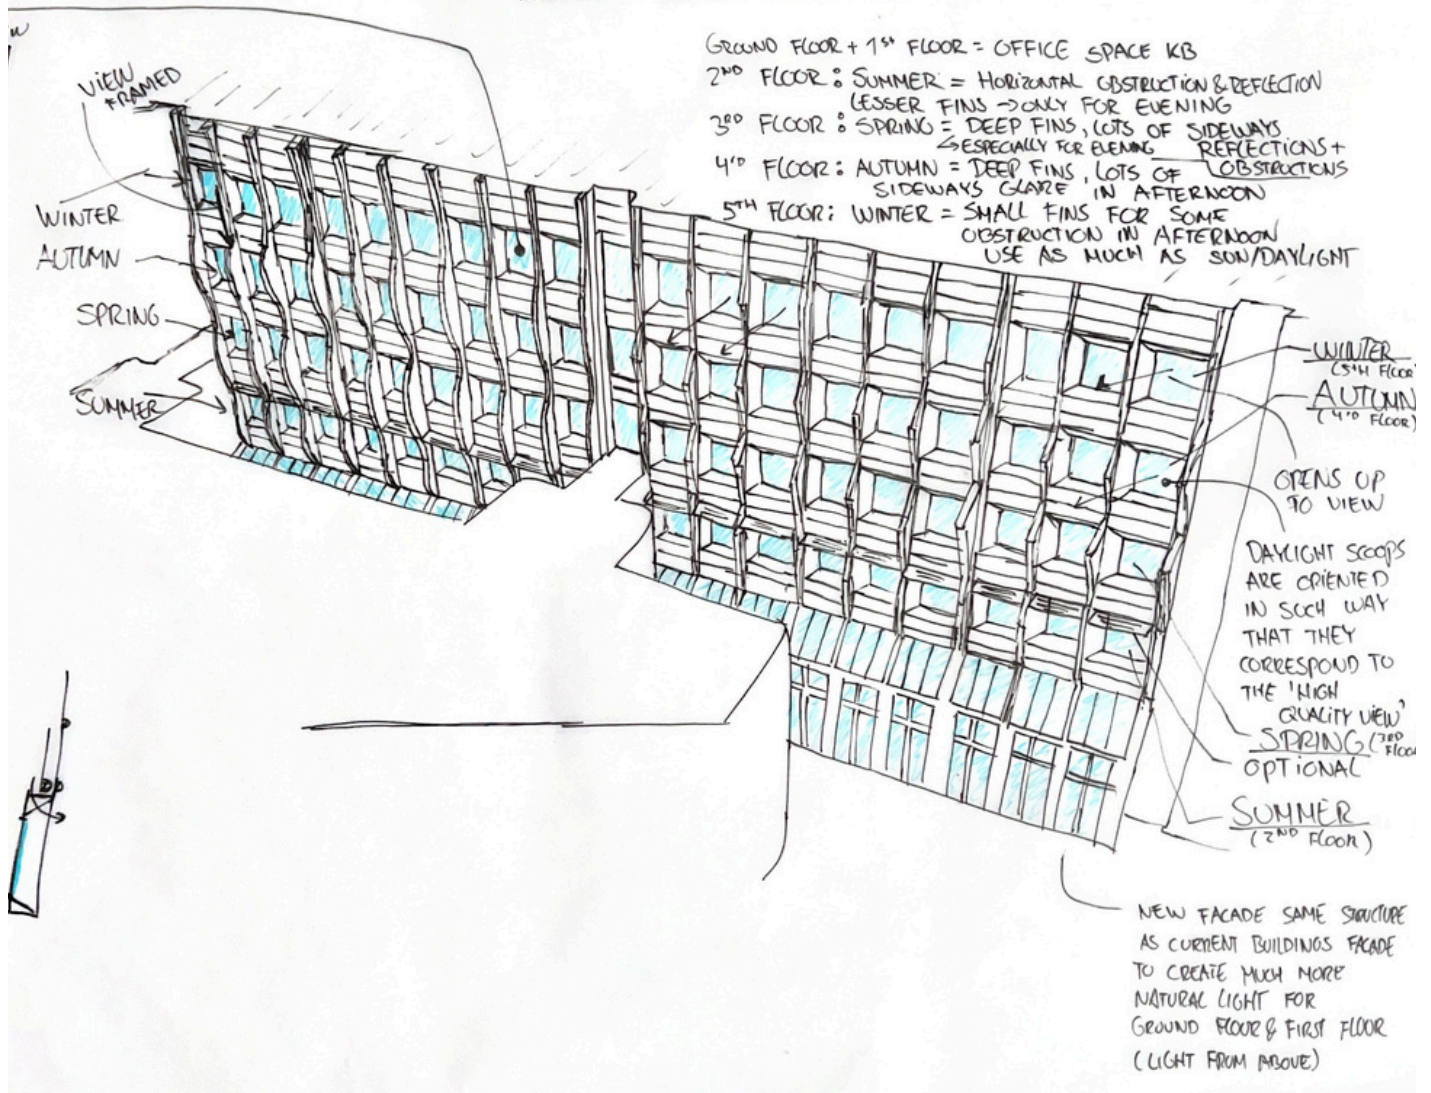 GROUND FLOOR + 1ST FLOOR = OFFICE SPACE KB
2ND FLOOR : SUMMER = HORIZONTAL OBSTRUCTION & REFLECTION
LESSER FINS → ONLY FOR EVENING
3RD FLOOR : SPRING = DEEP FINS, LOTS OF SIDEWAYS
ESPECIALLY FOR EVENING REFLECTIONS +
OBSTRUCTIONS
4'D FLOOR : AUTUMN = DEEP FINS, LOTS OF
SIDEWAYS GLARE IN AFTERNOON
5TH FLOOR: WINTER = SMALL FINS FOR SOME
OBSTRUCTION IN AFTERNOON
USE AS MUCH AS SUN/DAYLIGHT
VIEW
FRAMED
WINTER
AUTUMN
SPRING
SUMMER
WINTER
(5TH FLOOR
AUTUMN
(4'D FLOOR)
OPENS UP
TO VIEW
DAYLIGHT SCOOPS
ARE ORIENTED
IN SUCH WAY
THAT THEY
CORRESPOND TO
THE 'HIGH
QUALITY VIEW'
SPRING (3RD
FLOOR
OPTIONAL
SUMMER
(2ND FLOOR)
NEW FACADE SAME STRUCTURE
AS CURRENT BUILDINGS FACADE
TO CREATE MUCH MORE
NATURAL LIGHT FOR
GROUND FLOUR & FIRST FLOOR
(LIGHT FROM ABOVE)